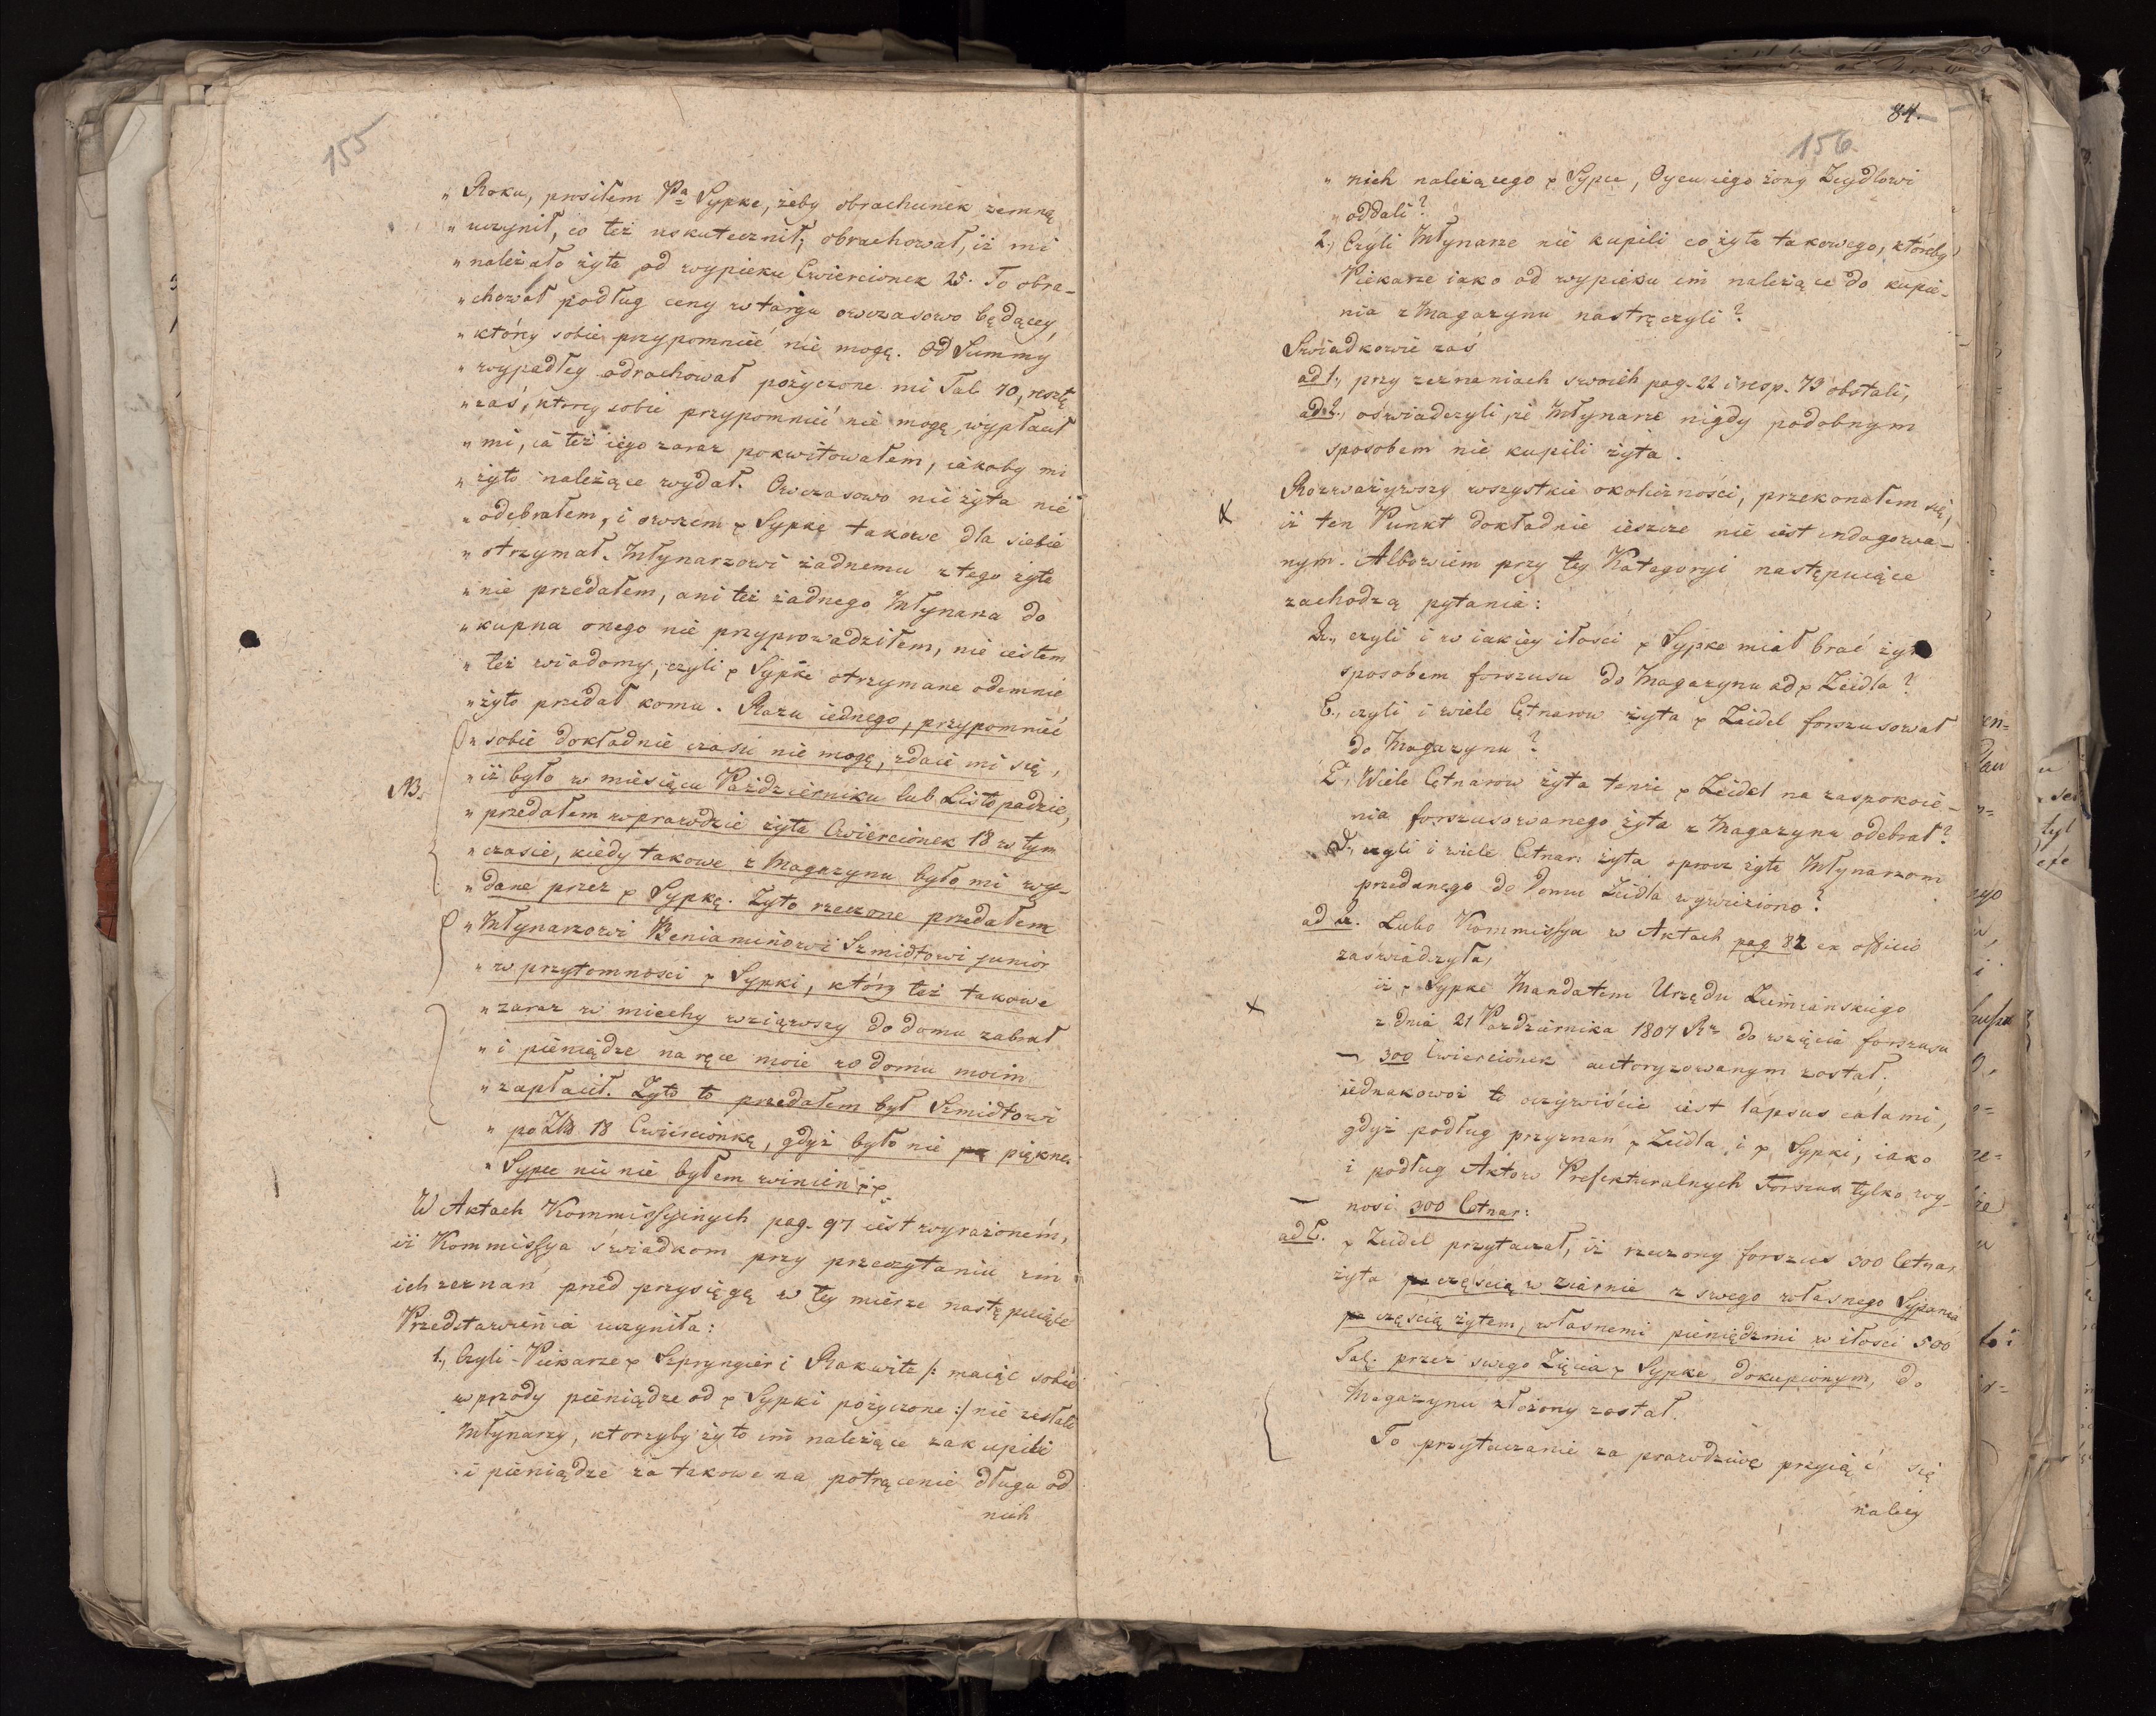 155
„ Roku, prosiłem Pa Sypke, żeby obrachunek zemną
„ uczynił, co też uskutecznił; obrachował, iż mi
„ należało żyta od wypieku Cwiercionek 25. To obra-
„ chował podług ceny w targu owczasowo będącey,
„ któréy sobie przypomnieć nie mogę. Od Summy
„ wypadłey odrachował pożyczone mi Tal. 70, resztę
„ zaś, ktorey sobie przypomnieć nie mogę, wypłacił
„ mi, ia też iego zaraz pokwitowałem, iakoby mi
„ żyto należące wydał. Owczasowo nie żyta nie
„ odebrałem, i owszem p Sypkę takowe dla siebie
„ otrzymał. Młynarzowi żadnemu z tego żyta
„ nie przedałem, ani też żadnego Młynarza do
„ kupna onego nie przyprowadziłem, nie iestem
„ też wiadomy, czyli p Sypke otrzymane odemnie
„ żyto przedał komu. Razu iednego, przypomnieć
„ sobie dokładnie czasu nie mogę, zdaie mi się,
NB. „ iż było w miesiącu Październiku lub Listopadzie,
„ przedałem wprawdzie żyta Cwiercionek 18 w tym
„ czasie, kiedy takowe z Magazynu było mi wy-
„ dane przez p Sypkę. Żyto rzeczone przedałem
„ Młynarzowi Beniaminowi Szmidtowi junior
„ w przytomności p Sypki, który też takowe
„ zaraz w miechy wziąwszy do domu zabrał
„ i pieniądze na ręce moie w domu moim
„ zapłacił. Żyto to przedałem był Szmidtowi
„ po Złt 18 Cwiercionkę, gdyż było nie piękne.
„ Sypce nic nie byłem winien pp
W Aktach Kommissyinych pag. 97 iest wyrażonem,
iż Kommissya świadkom przy przeczytaniu im
ich zeznan przed przysięgą w tey mierze następuiące
Przedstawienia uczyniła:
1., Czyli Piekarze p Szpryngier i Rakwitz /: maiąc sobie
wprzody pieniądze od p Sypki pożyczone :/ nie zesłali
Młynarzy, ktorzyby żyto im należące zakupili
i pieniądze za takowe na potrącenie długu od
nich
84.
156
„ nich należącego p Sypce, Oycu iego żony Zeydlowi
„ oddali?
2., Czyli Młynarze nie kupili co żyta takowego, któreby
Piekarze iako od wypieku im należące do kupie-
nia z Magazynu nastręczyli?
Swiadkowie zaś
ad 1., przy zeznaniach swoich pag. 22 i resp. 73 obstali,
ad 2., oświadczyli, że Młynarze nigdy podobnym
sposobem nie kupili żyta.
Rozważywszy wszystkie okoliczności, przekonałem się,
iż ten Punkt dokładnie ieszcze nie iest indagowa-
nym. Albowiem przy tey Kategoryi następuiące
zachodzą pytania:
czyli i w iakiey ilości p Sypke miał brać
sposobem forszusu do Magazynu od p Zeidla?
czyli i wiele Cętnarow żyta p Zeidel forszusował
do Magazynu?
Wiele Cętnarow żyta tenże p Zeidel na zaspokoie-
nia forszusowanego żyta z Magazynu odebrał?
czyli i wiele Cetnar: żyta oprocz żyta Młynarzom
przedanego do Domu Zeidla wywieziono?
ad Lubo Kommissya w Aktach pag 82 ex officio
zaświadczyła,
iż p Sypke Mandatem Urzędu Ziemiańskiego
z dnia 21 Października 1807 Rr do wzięcia forszusu
300 Cwiercionek autoryzowanym został.
iednakowoż to oczywiście iest lapsus calami,
gdyż podług przyznań p Zeidla i p Sypki, iako
i podług Aktow Prefekturalnych Forszus tylko wy-
nosi 300 Cetnar:
p Zeidel przytaczał, iż rzeczony forszus 300 Cetnar
żyta częścią w ziarnie z swego własnego Sypania
częścią żytem, własnemi pieniędzmi w ilości 500
Tal. przez swego Zięcia p Sypke, dokupionym, do
Magazynu złożony został.
To przytaczanie za prawdziwe przyiąć się
należy